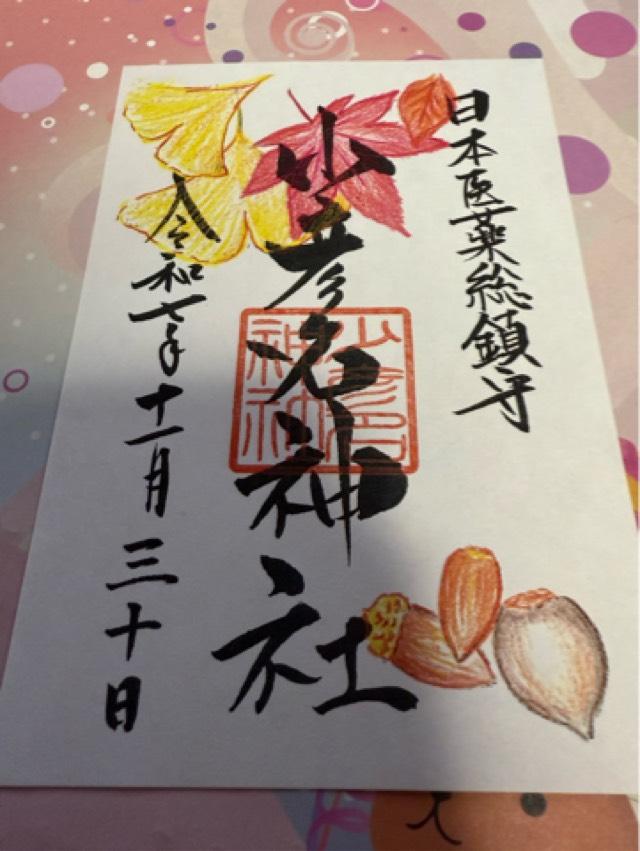 日本医薬総鎮守
少彦名神社
少彦名
神社
令和七年十一月三十日